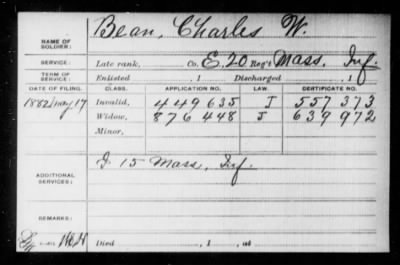 NAME OF SOLDIER: Bean, Charles W.
SERVICE: Late rank, Co. E, 20 Reg't Mass. Inf.
TERM OF SERVICE: Enlisted , 1 Discharged , 1
DATE OF FILING. CLASS. APPLICATION NO. LAW. CERTIFICATE NO.
1882 May 17 Invalid, 449635 J 557373
Widow, 876448 J 639972
Minor,
ADDITIONAL SERVICES: I 15 Mass. Inf.
REMARKS:
Died , 1 , at